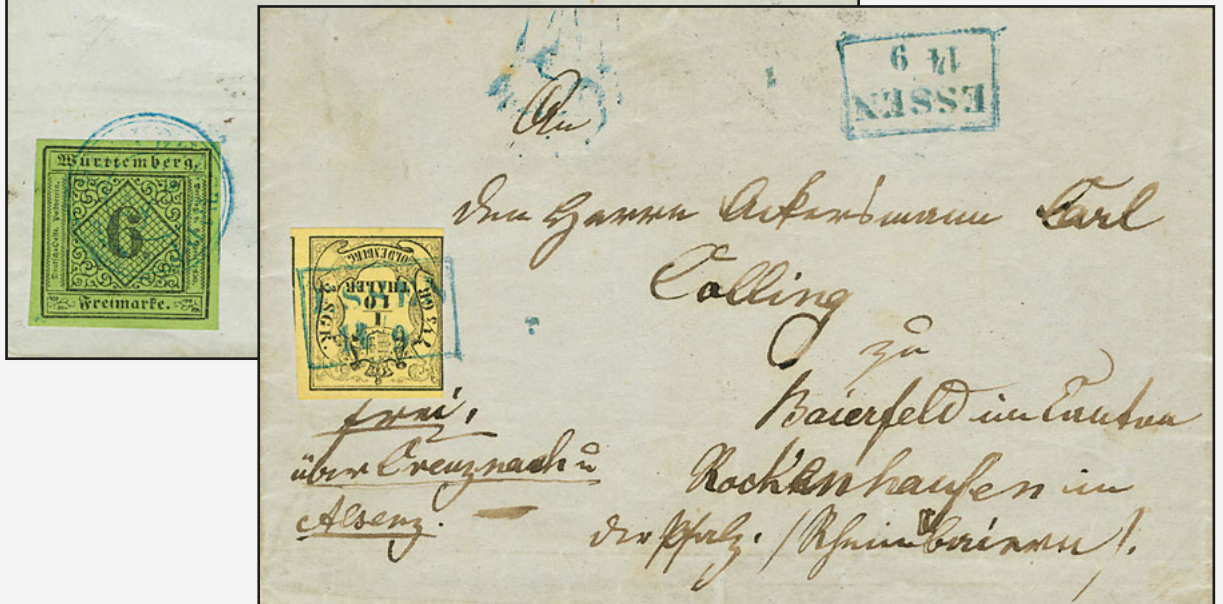 Württemberg.
6
Freimarke.
ESSEN
14 9
An
den Herrn Ackersmann Carl
Colling
zu
Baierfeld im Canton
Rockenhausen in
der Pfalz. / Rheinbaiern /.
OLDENBURG.
1
10
THALER
3 SGR.
ESSEN
14 9
frei,
über Creuznach u
Alsenz.